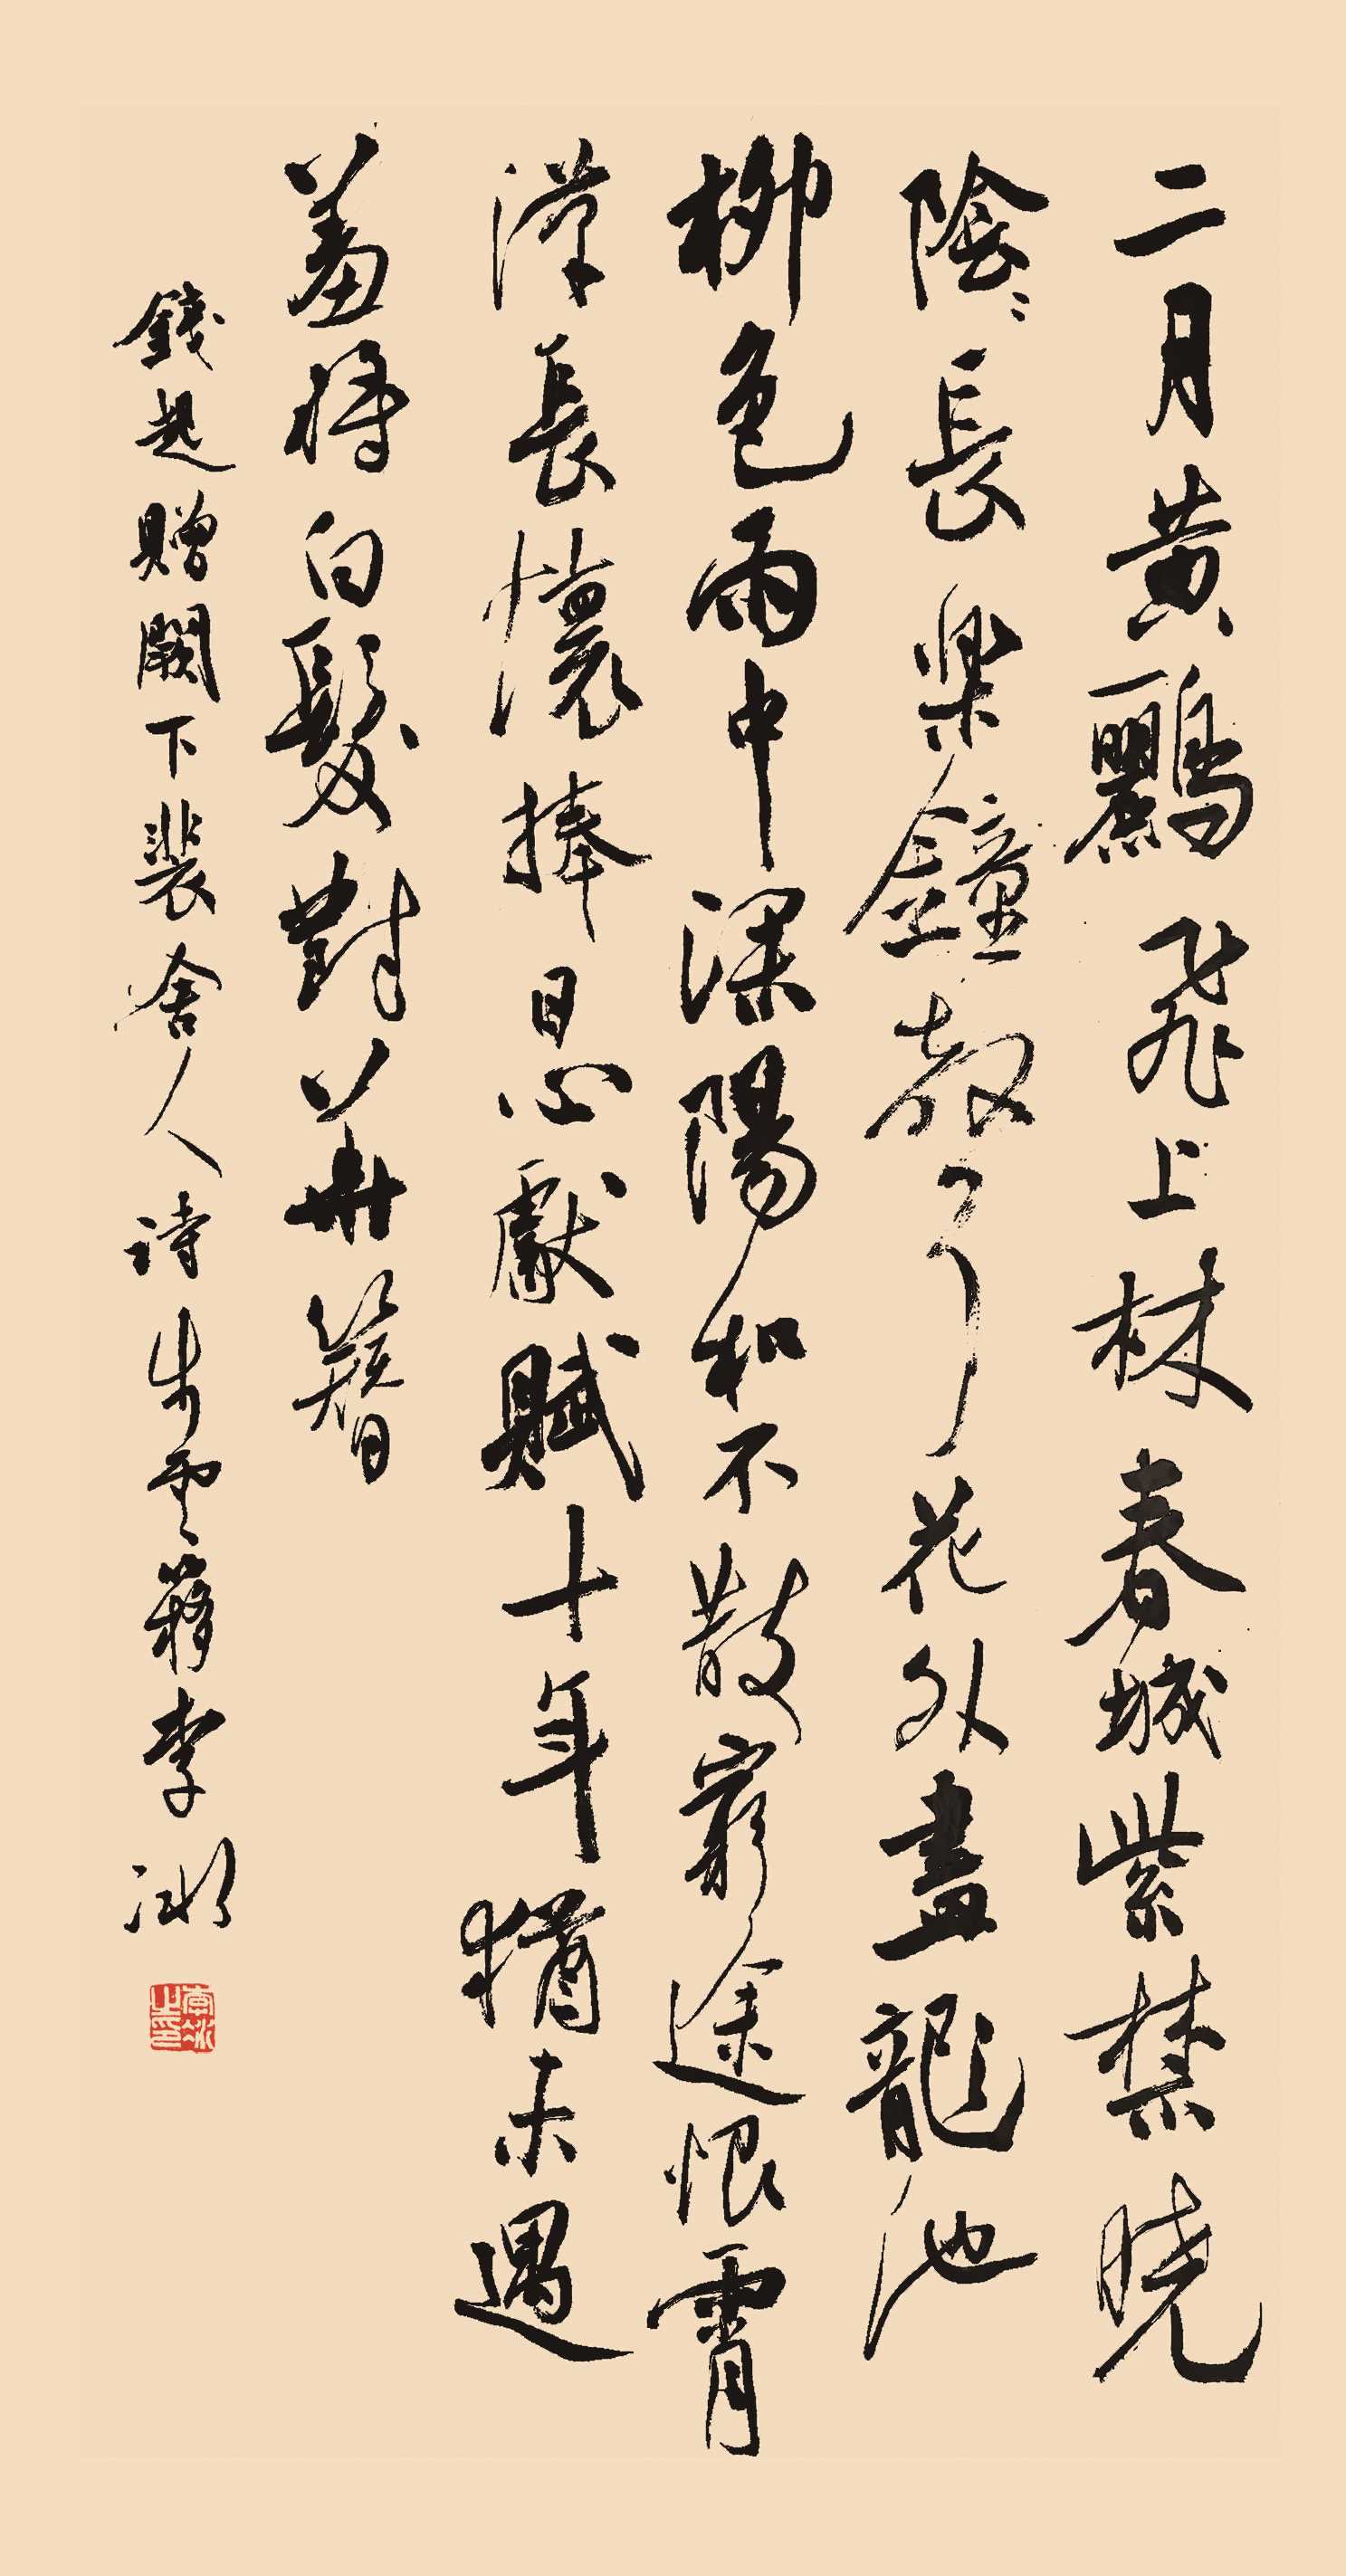 二月黄鸝飛上林春城紫禁曉
陰〻長樂鐘聲花外盡龍池
柳色雨中深陽和不散窮途恨霄
漢長懷捧日心獻賦十年猶未遇
羞將白髮對華簪
錢起贈闕下裴舍人詩步雲簃李冰
李冰之印